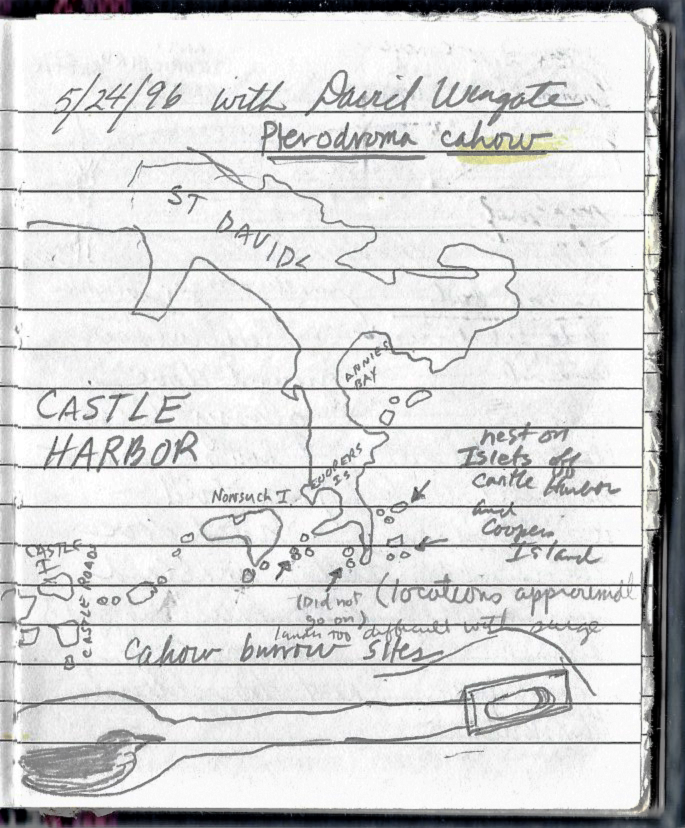 5/24/96 with David Wingate
Pterodroma cahow
ST DAVIDS
ANNIES
BAY
CASTLE
HARBOR
COOPERS
IS
Nonsuch I.
nest on
Islets off
Castle Harbor
and
Coopers
Island
CASTLE
I
CASTLE ROADS
(locations approximal
(Did not
go on)
landing too difficult with surge
Cahow burrow sites